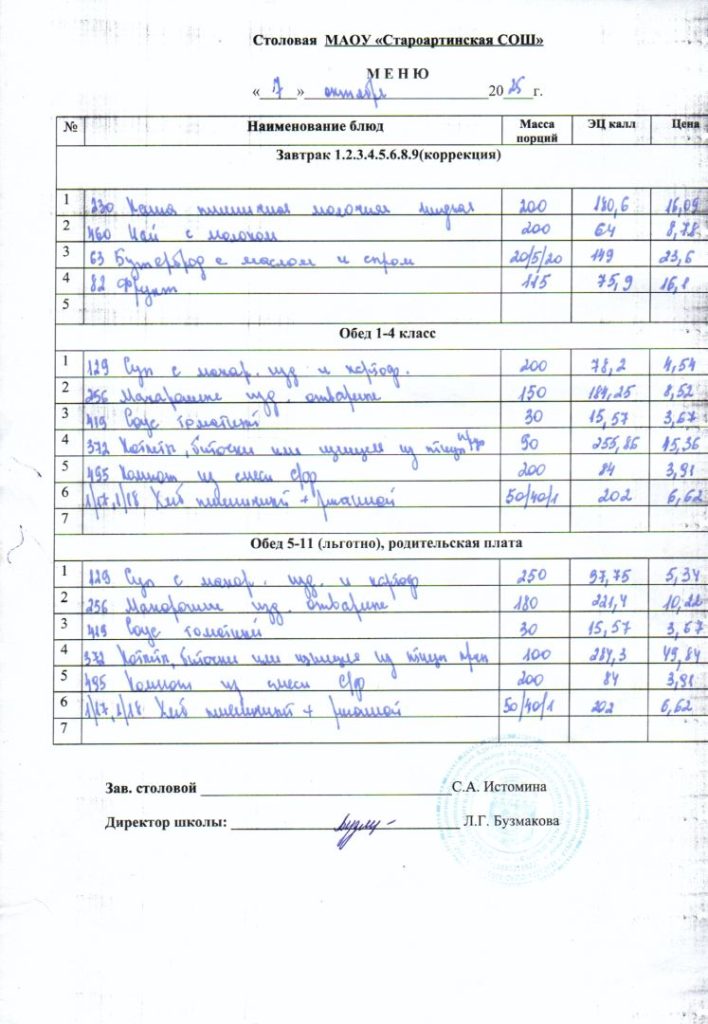 Столовая МАОУ «Староартинская СОШ»
МЕНЮ
« 7 » октября 20 25 г.
№ Наименование блюд Масса порций ЭЦ калл Цена
Завтрак 1.2.3.4.5.6.8.9(коррекция)
1 230 Каша пшеничная молочная жидкая 200 180,6 16,09
2 460 Чай с молоком 200 64 8,78
3 63 Бутерброд с маслом и сыром 20/5/20 149 23,6
4 82 Фрукт 115 75,9 16,1
5
Обед 1-4 класс
1 129 Суп с макар. изд. и картоф. 200 78,2 4,54
2 256 Макаронные изд. отварные 150 184,25 8,52
3 419 Соус томатный 30 15,57 3,67
4 372 Котлеты, биточки или изделие из птицы 90 255,86 45,36
5 495 Компот из смеси с/ф 200 84 3,91
6 1/17,1/18 Хлеб пшеничный + ржаной 50/40/1 202 6,62
7
Обед 5-11 (льготно), родительская плата
1 129 Суп с макар. изд. и картоф 250 97,75 5,34
2 256 Макаронные изд. отварные 180 221,4 10,22
3 419 Соус томатный 30 15,57 3,67
4 372 Котлеты, биточки или изделие из птицы 100 284,3 49,84
5 495 Компот из смеси с/ф 200 84 3,91
6 1/17,1/18 Хлеб пшеничный + ржаной 50/40/1 202 6,62
7
Зав. столовой С.А. Истомина
Директор школы: Л.Г. Бузмакова